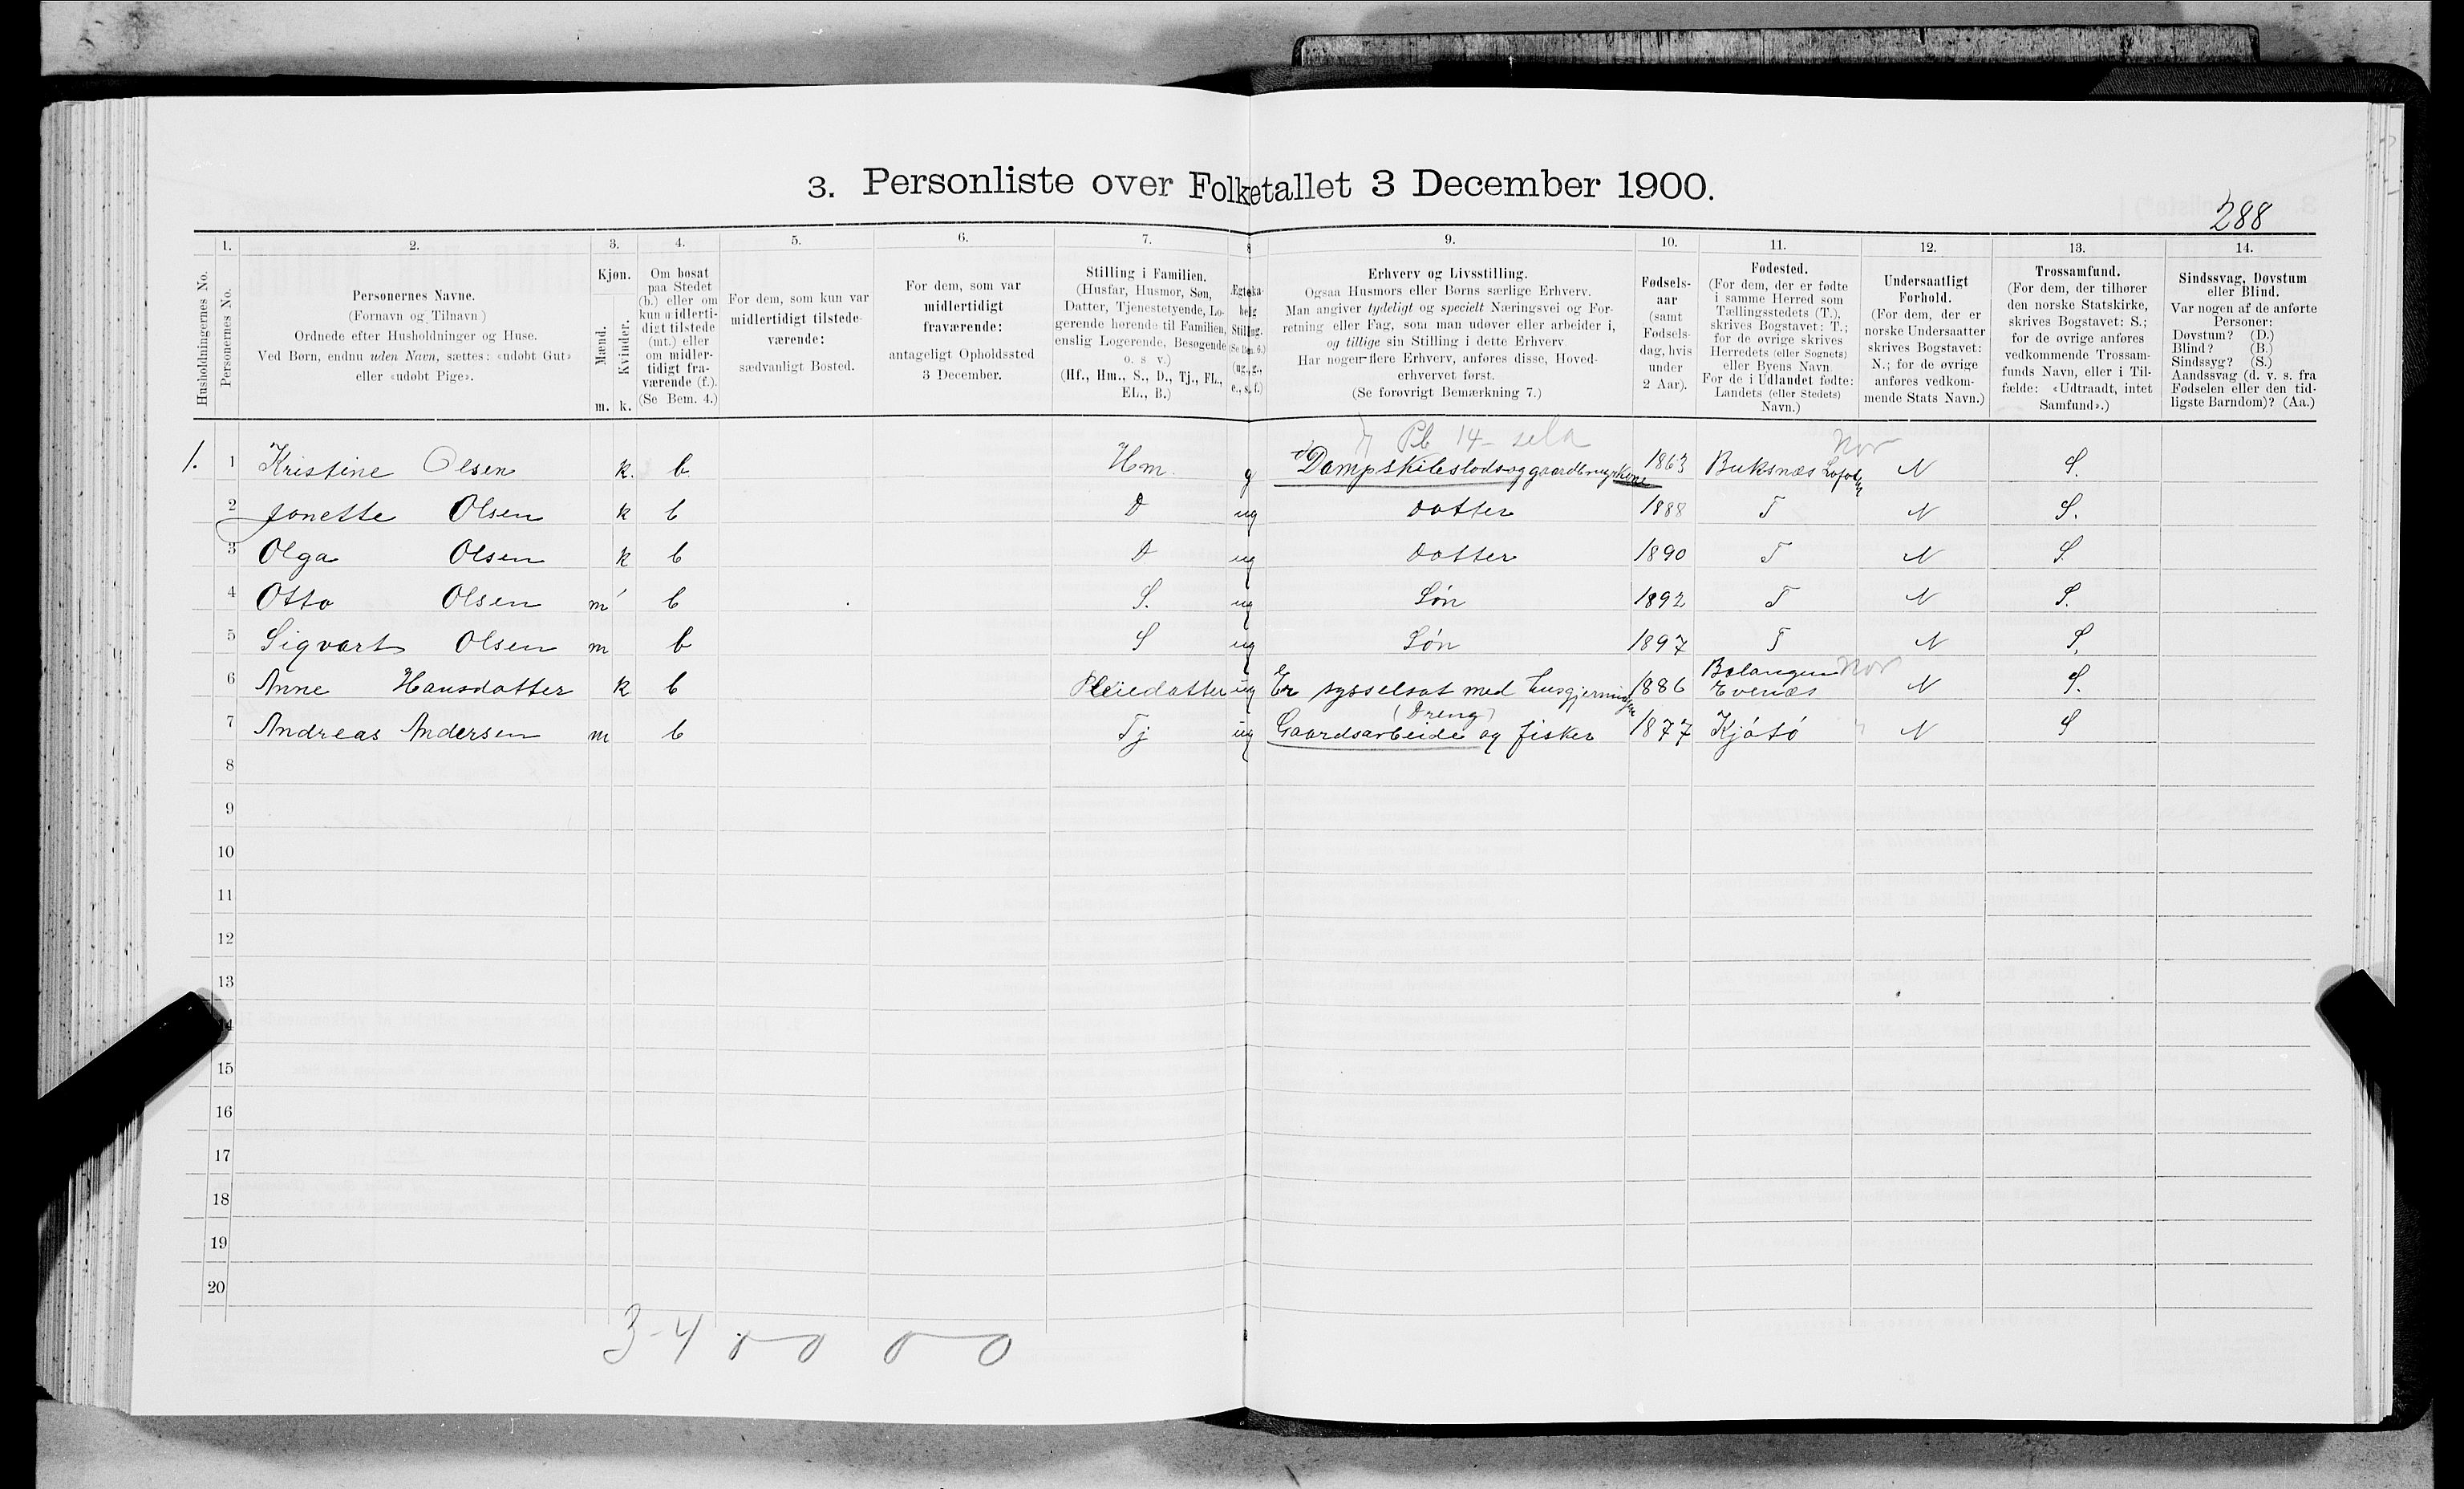 3. Personliste over Folketallet 3 December 1900.
288
1. 2. 3. 4. 5. 6. 7. 8 9. 10. 11. 12. 13. 14.
Husholdningernes No.
Personernes No.
Personernes Navne.
(Fornavn og Tilnavn)
Ordnede efter Husholdninger og Huse.
Ved Børn, endnu uden Navn, sættes: «udøbt Gut»
eller «udøbt Pige».
Kjøn.
Mænd.
Kvinder.
m. k.
Om bosat
paa Stedet
(b.) eller om
kun midlerti-
digt tilstede
(mt.) eller
om midler-
tidigt fra-
værende (f.).
(Se Bem. 4.)
For dem, som kun var
midlertidigt tilstede-
værende:
sædvanligt Bosted.
For dem, som var
midlertidigt
fraværende:
antageligt Opholdssted
3 December.
Stilling i Familien.
(Husfar, Husmor, Søn,
Datter, Tjenestetyende, Lo-
gerende hørende til Familien,
enslig Logerende, Besøgende
o. s. v.)
(Hf., Hm., S., D., Tj., FL.,
EL., B.)
Ægteska-
belig
Stilling.
(Se Bem. 6.)
(ug., g.,
e., s., f.)
Erhverv og Livsstilling.
Ogsaa Husmors eller Børns særlige Erhverv.
Man angiver tydeligt og specielt Næringsvei og For-
retning eller Fag, som man udøver eller arbeider i,
og tillige sin Stilling i dette Erhverv.
Har nogen flere Erhverv, anføres disse, Hoved-
erhvervet først.
(Se forøvrigt Bemærkning 7.)
Fødsels-
aar
(samt
Fødsels-
dag, hvis
under
2 Aar).
Fødested.
(For dem, der er fødte
i samme Herred som
Tællingsstedets (T.),
skrives Bogstavet: T.;
for de øvrige skrives
Herredets (eller Sognets)
eller Byens Navn.
For de i Udlandet fødte:
Landets (eller Stedets)
Navn.)
Undersaatligt
Forhold.
(For dem, der er
norske Undersaatter
skrives Bogstavet:
N.; for de øvrige
anføres vedkom-
mende Stats Navn.)
Trossamfund.
(For dem, der tilhører
den norske Statskirke,
skrives Bogstavet: S.;
for de øvrige anføres
vedkommende Trossam-
funds Navn, eller i Til-
fælde: «Udtraadt, intet
Samfund».)
Sindssvag, Døvstum
eller Blind.
Var nogen af de anførte
Personer:
Døvstum? (D.)
Blind? (B.)
Sindssyg? (S.)
Aandssvag (d. v. s. fra
Fødselen eller den tid-
ligste Barndom)? (Aa.)
Pb 14- Nor
1. 1 Kristine Olsen k. b. Hm. g Dampskibslods og gaardbruger kone 1863 Buksnæs Lofoten N S.
2 Jonette Olsen k b D ug Datter 1888 T N S.
3 Olga Olsen k b D ug Datter 1890 T N S
4 Otto Olsen m b S. ug Søn 1892 T N S.
5 Sigvart Olsen m b S ug Søn 1897 T N S.
Balangen Nor
6 Anne Hansdatter k b Pleiedatter ug Er sysselsat med husgjerningen 1886 Evenæs N S.
(Dreng)
7 Andreas Andersen m b Tj ug Gaardsarbeide og fisker 1877 Kjøtø N S
8
9
10
11
12
13
14
15
16
17
18
19
20
3-4 0 0 0 0